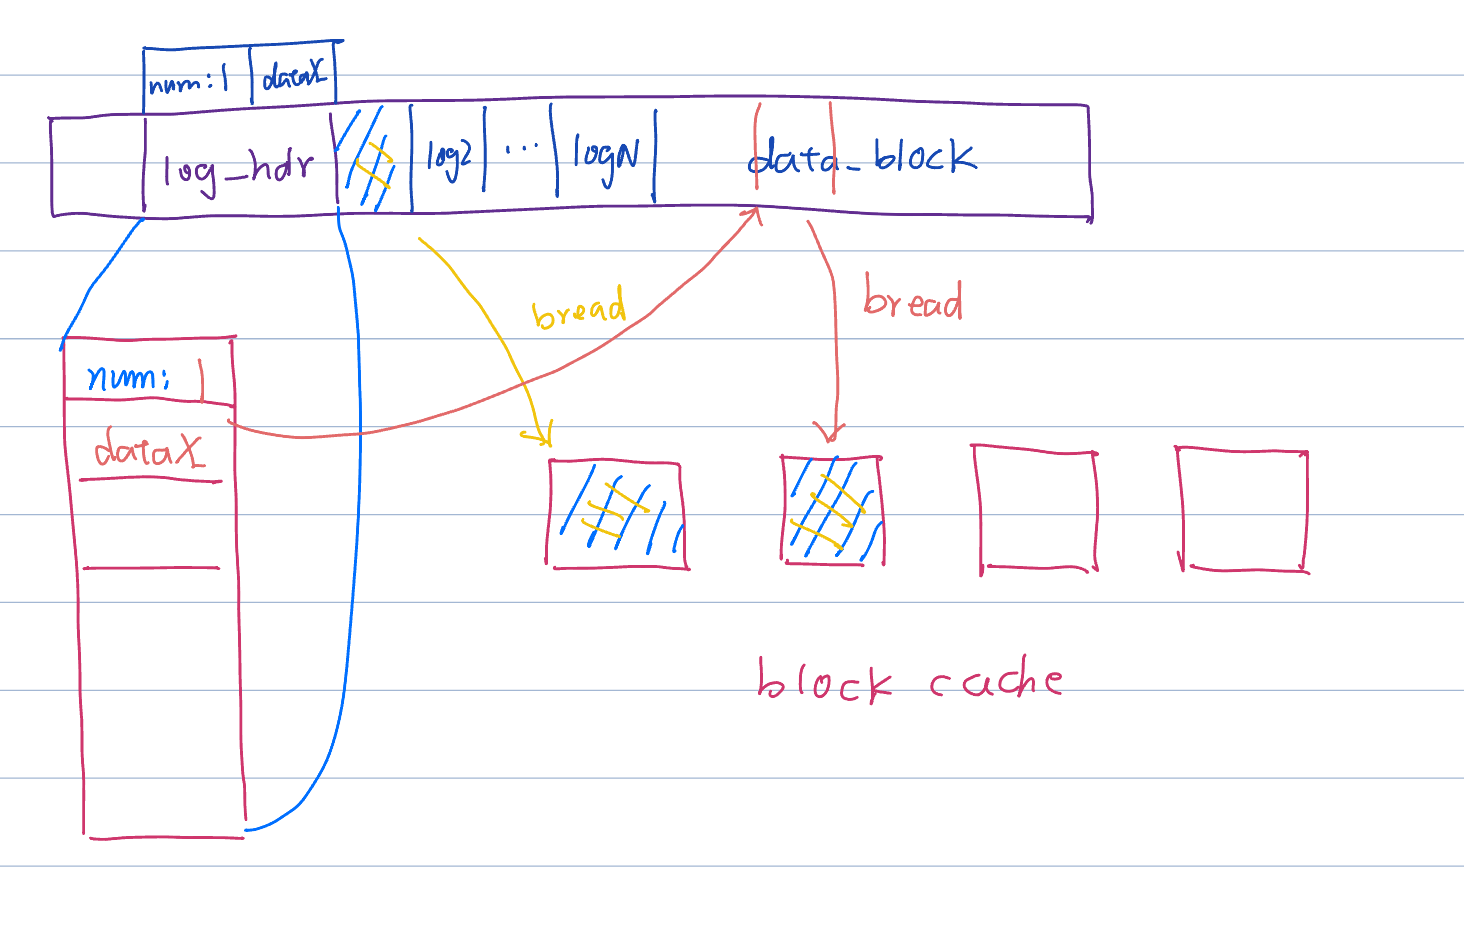 num: 1 dataX
log_hdr log2 ... logN data_block
bread
bread
num: 1
dataX
block cache